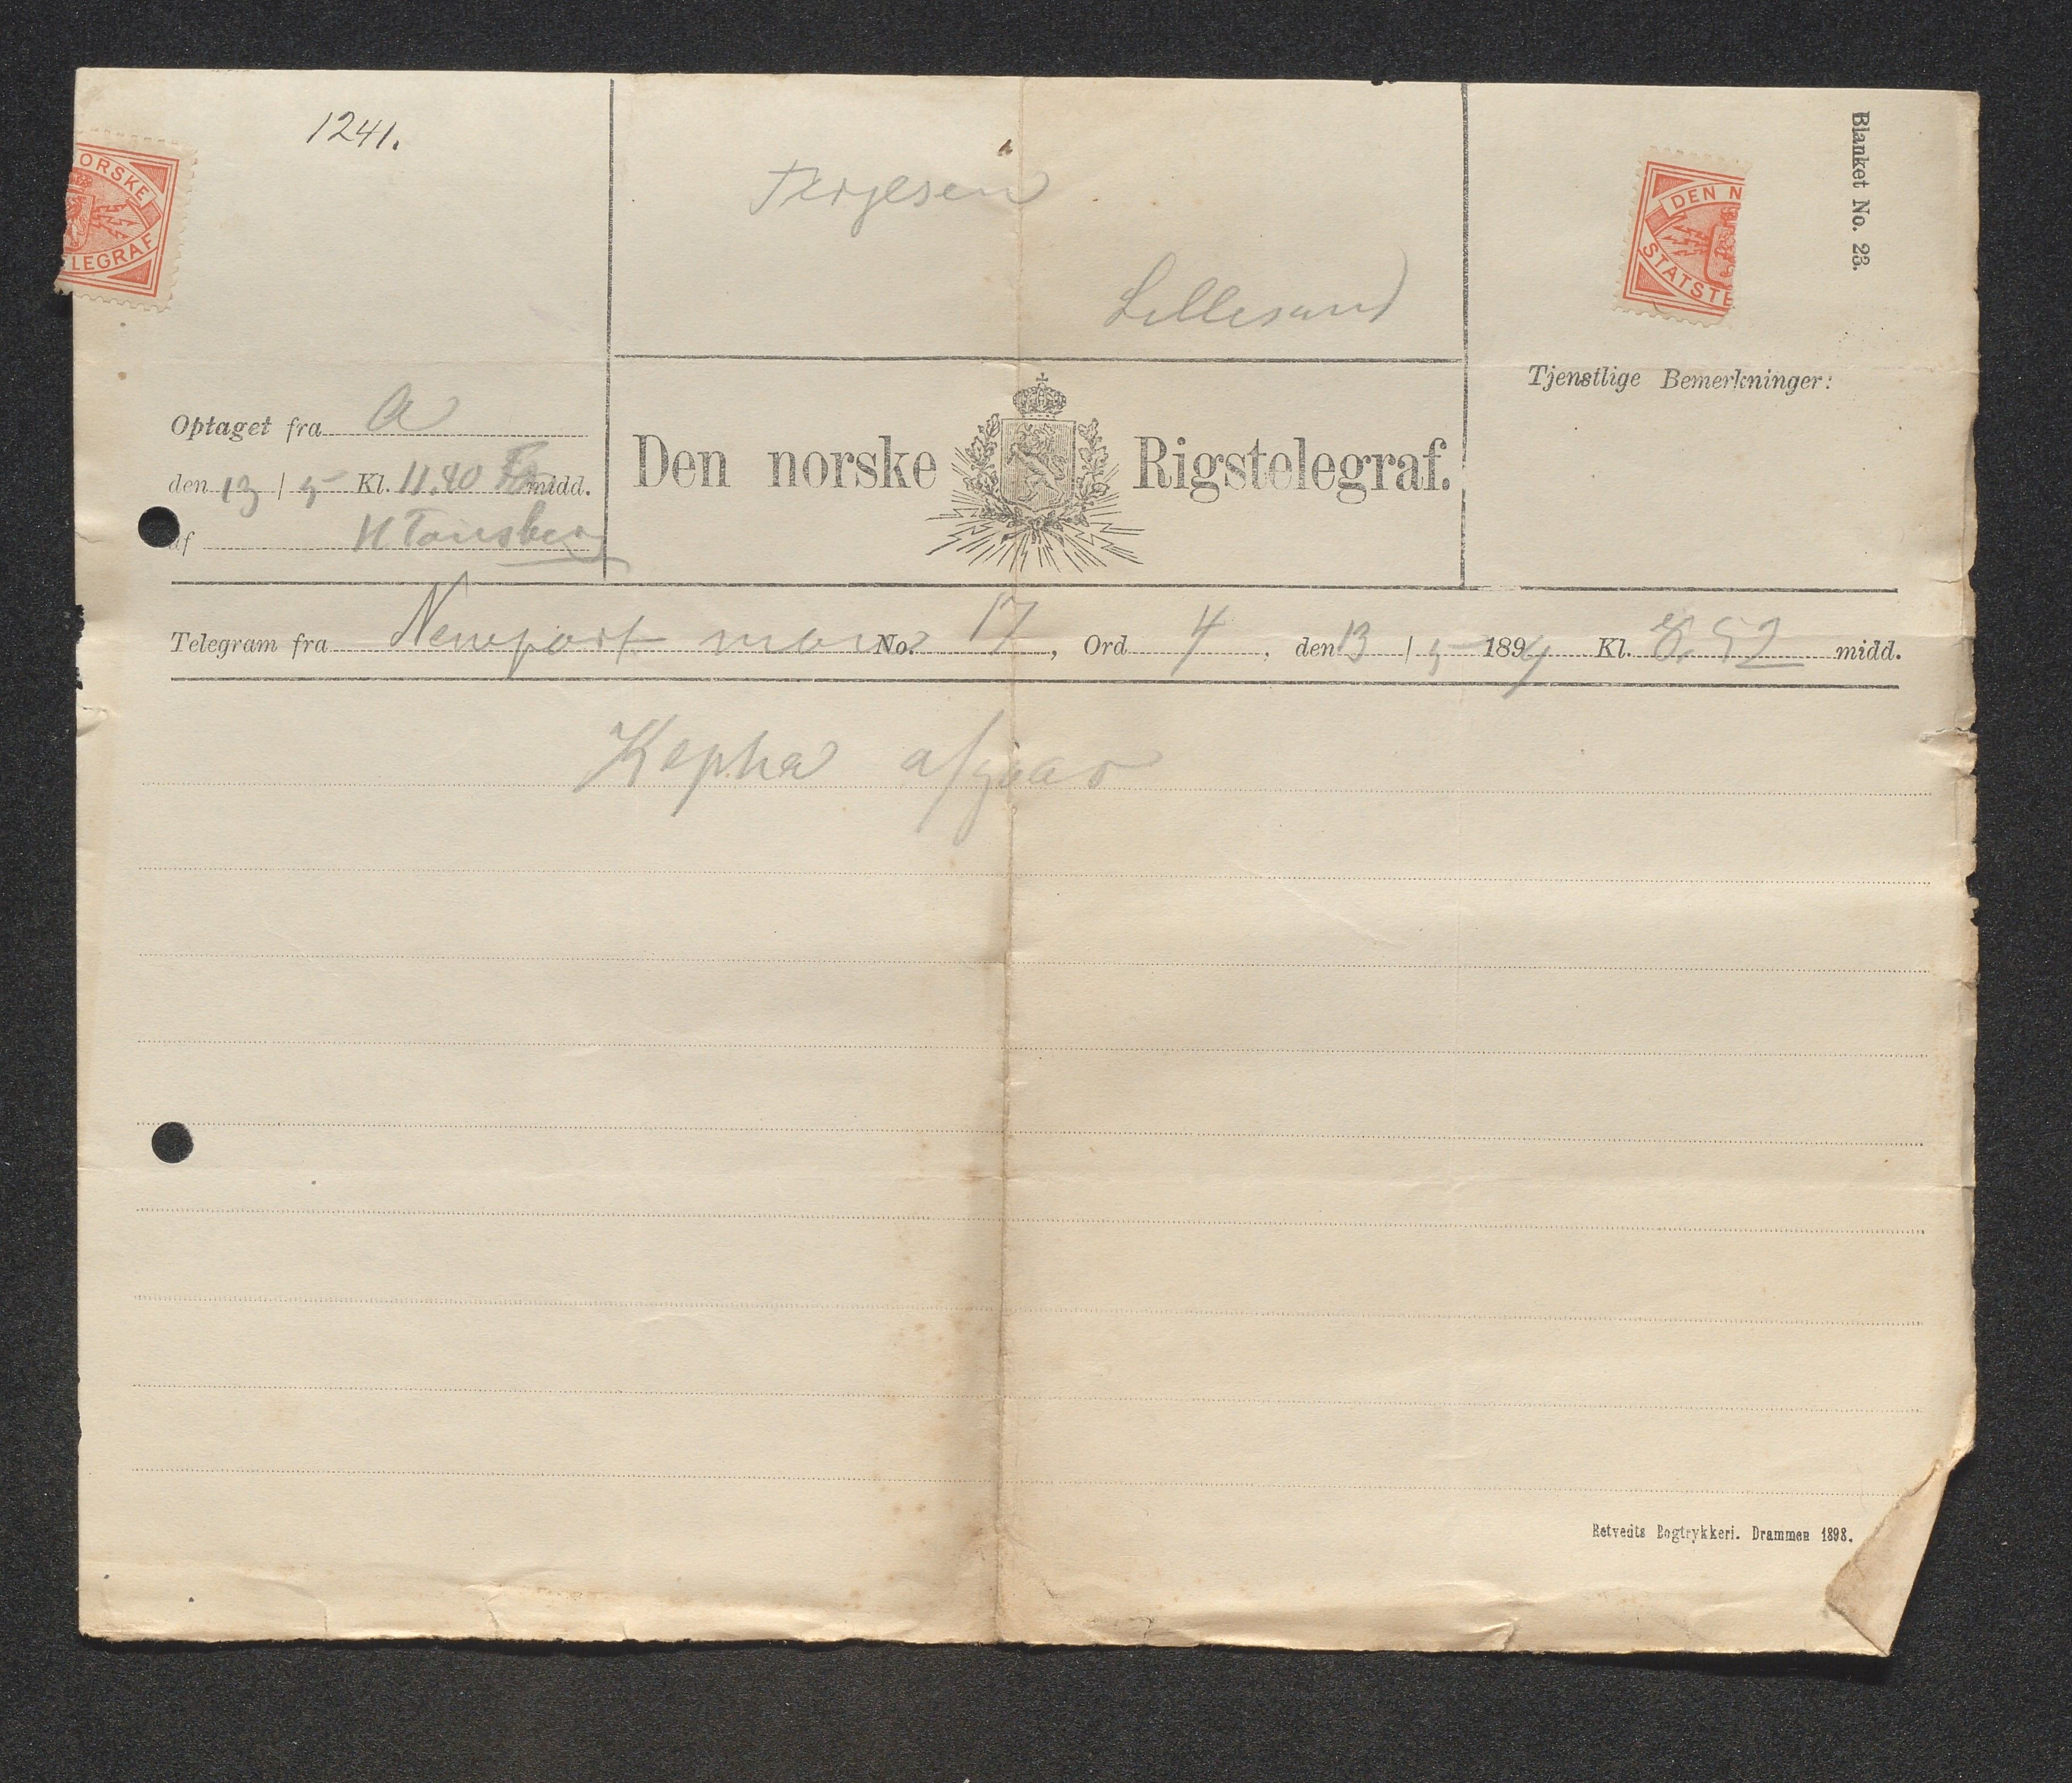 1241.
ORSKE
LEGRAF
Terjesen
Lillesand
DEN N
STATSTE
Blanket No. 23.
Tjenstlige Bemerkninger:
Optaget fra A
den 13 / 5 Kl. 11.40 F midd.
af H Tønsberg
Den norske Rigstelegraf.
Telegram fra Newport mon No. 17, Ord 4, den 13 / 5 1899 Kl. 8.52 midd.
Kepha afgaar
Retvedts Bogtrykkeri. Drammen 1898.